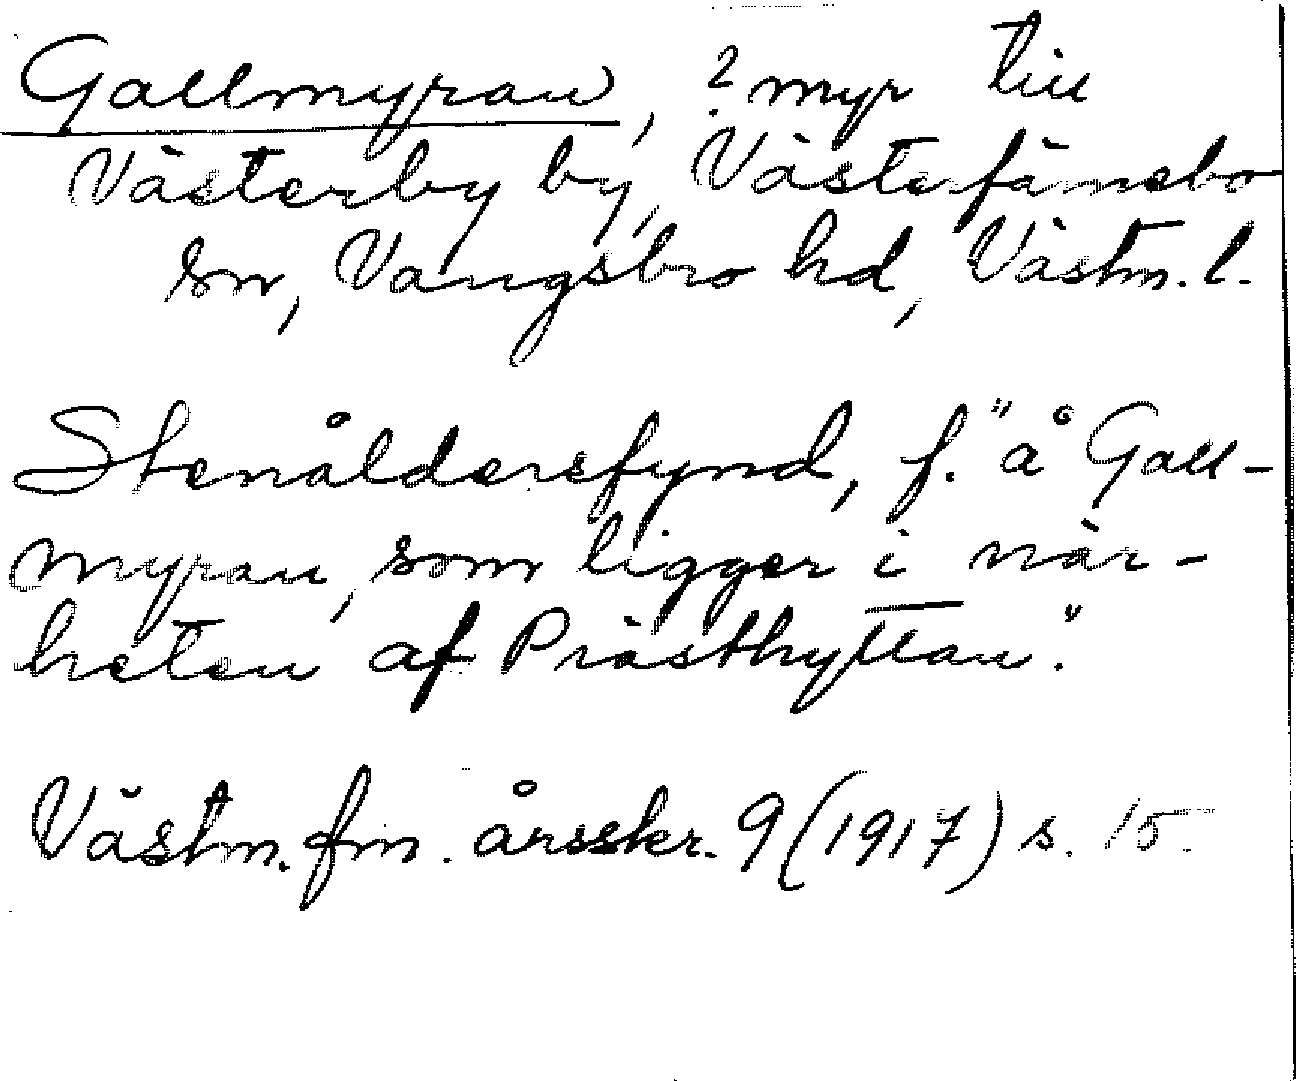 Gallmyran, ? myr till
Västerby by, Västerfärnebo
sn, Vangsbro hd, Västm. l.
Stenåldersfynd, f. "å Gall-
myran, som ligger i när-
heten af Prästhyttan."
Västm. fm. årsskr. 9 (1917) s. 15.